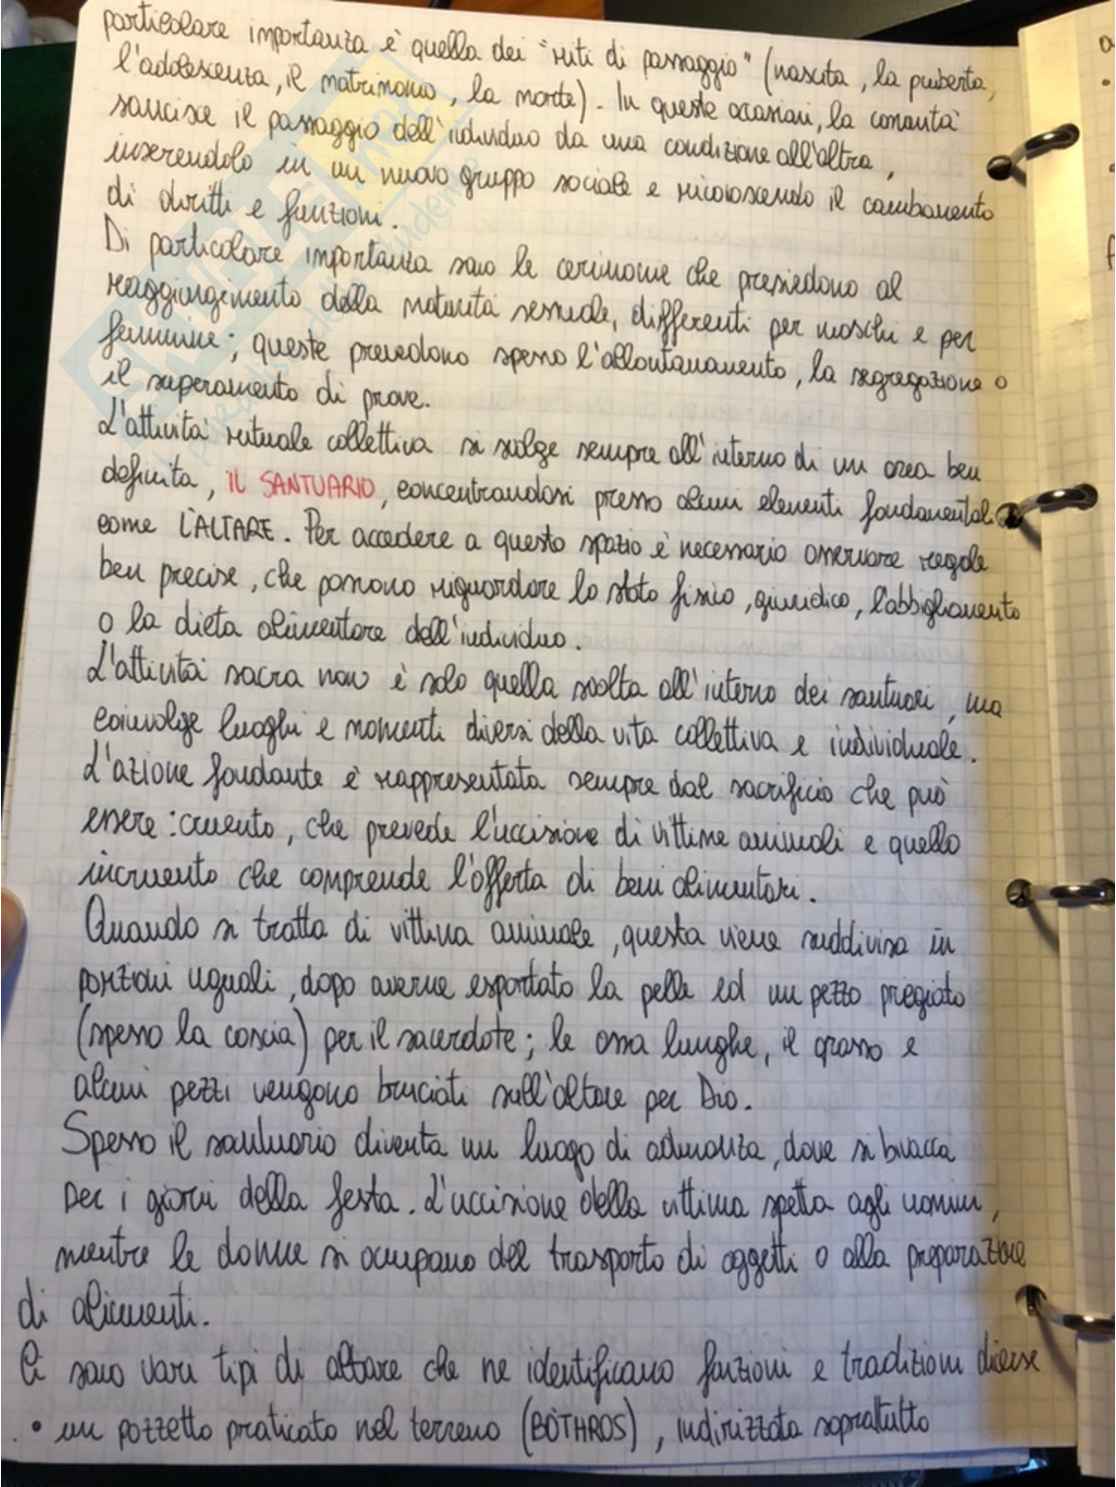 particolare importanza è quella dei "riti di passaggio" (nascita, la pubertà,
l'adolescenza, il matrimonio, la morte). In queste occasioni, la comunità
sancisce il passaggio dell'individuo da una condizione all'altra,
inserendolo in un nuovo gruppo sociale e riconoscendo il cambiamento
di diritti e funzioni.
Di particolare importanza sono le cerimonie che presiedono al
raggiungimento della maturità sessuale, differenti per maschi e per
femmine; queste prevedono spesso l'allontanamento, la segregazione o
il superamento di prove.
L'attività rituale collettiva si svolge sempre all'interno di un area ben
definita, IL SANTUARIO, concentrandosi presso alcuni elementi fondamentali
come L'ALTARE. Per accedere a questo spazio è necessario osservare regole
ben precise, che possono riguardare lo stato fisico, giuridico, l'abbigliamento
o la dieta alimentare dell'individuo.
L'attività sacra non è solo quella svolta all'interno dei santuari, ma
coinvolge luoghi e momenti diversi della vita collettiva e individuale.
L'azione fondante è rappresentata sempre dal sacrificio che può
essere: cruento, che prevede l'uccisione di vittime animali e quello
incruento che comprende l'offerta di beni alimentari.
Quando si tratta di vittima animale, questa viene suddivisa in
porzioni uguali, dopo averne esportato la pelle ed un pezzo pregiato
(spesso la coscia) per il sacerdote; le ossa lunghe, il grasso e
alcuni pezzi vengono bruciati sull'altare per Dio.
Spesso il santuario diventa un luogo di adunanza, dove si bivacca
per i giorni della festa. L'uccisione della vittima spetta agli uomini,
mentre le donne si occupano del trasporto di oggetti o alla preparazione
di alimenti.
Ci sono vari tipi di altare che ne identificano funzioni e tradizioni diverse
• un pozzetto praticato nel terreno (BÓTHROS), indirizzata soprattutto